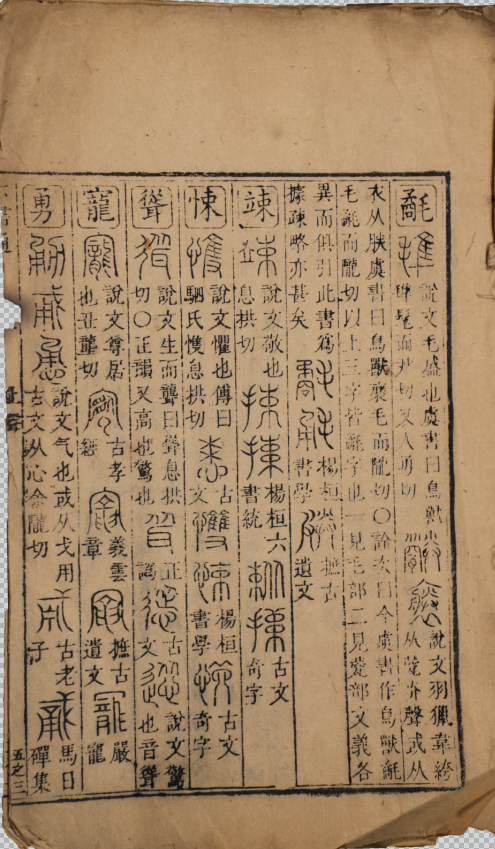 氄
說文毛盛也虞書曰鳥獸
髦而尹切又人勇切
說文羽獵韋絝
从㼱聲或从
衣从朕虞書曰鳥獸襃毛而隴切〇詮次曰今虞書作鳥獸氄
毛氄而隴切以上三字皆氄字也一見毛部二見㼱部文義各
異而俱引此書爲
據疎略亦甚矣
楊桓
書學
摭古
遺文
竦
說文敬也
息拱切
楊桓六
書統
古文
奇字
悚
說文懼也傅曰
駟氏㥦息拱切
古
文
楊桓
書學
古文
奇字
聳
說文生而聾曰聳息拱
切〇正譌又高也驚也
正
譌
古
文
說文驚
也音聳
寵
說文尊居
也丑壟切
古孝
經
義雲
章
摭古
遺文
嚴
寵
勇
說文气也或从戈用
古文从心余隴切
古老
子
馬日
磾集
五之三